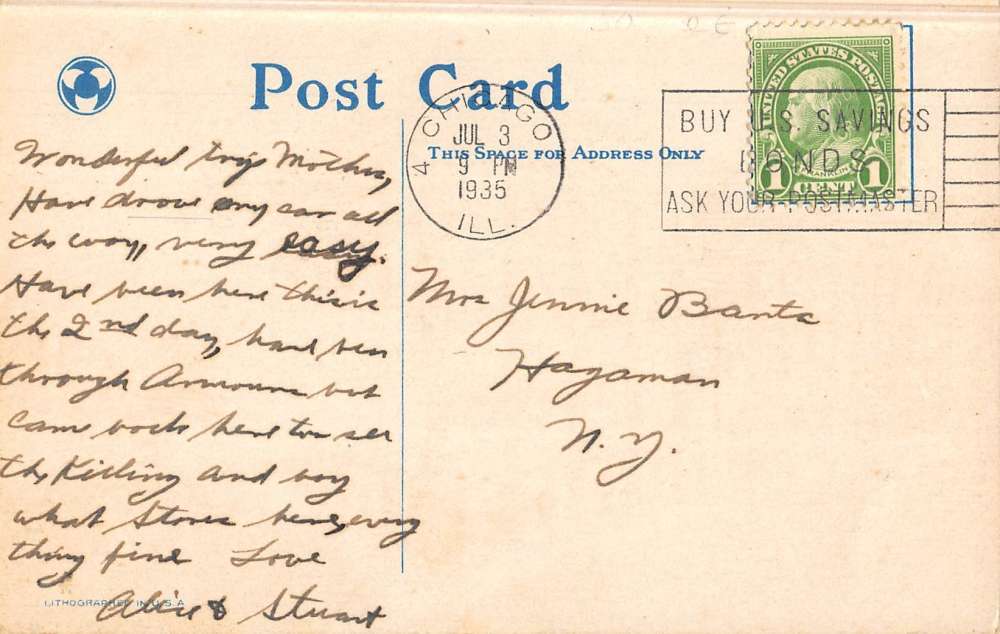 Post Card
THIS SPACE FOR ADDRESS ONLY
4 CHICAGO
JUL 3
9 PM
1935
ILL.
UNITED STATES POSTAGE
FRANKLIN
1 CENT 1
BUY U.S. SAVINGS
BONDS
ASK YOUR POSTMASTER
Wonderful trip Mother,
Have drove my car all
the way, very easy.
Have been here this is
the 2nd day, have been
through Armours but
came back here to see
the Killing and boy
what Stores here, every
thing fine Love
Alice & Stuart
Mrs Jennie Banta
Hagaman
N.Y.
LITHOGRAPHED IN U.S.A